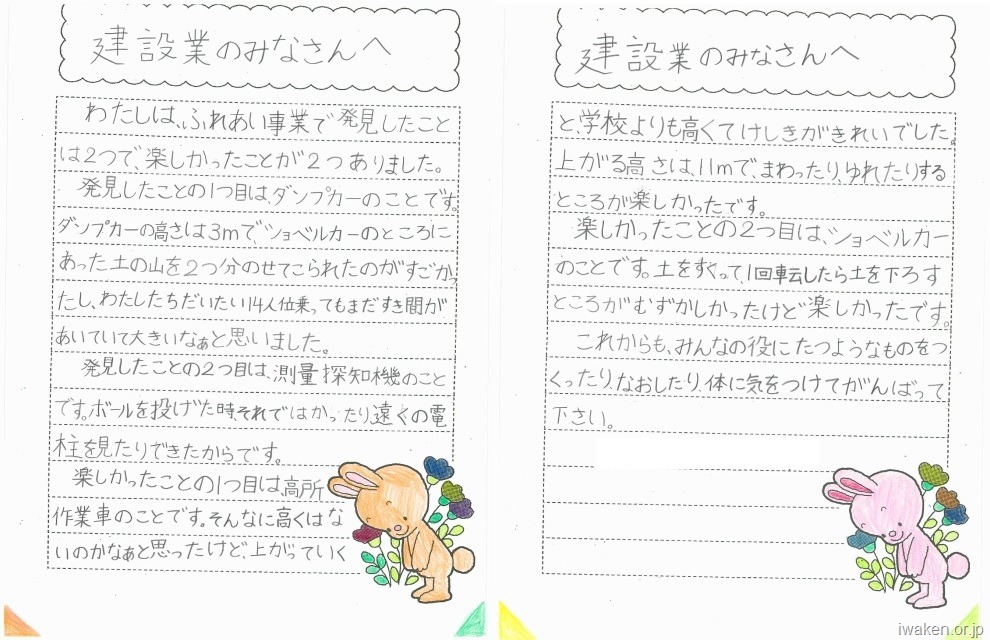 建設業のみなさんへ
わたしは、ふれあい事業で発見したこと
は2つで、楽しかったことが2つありました。
発見したことの1つ目は、ダンプカーのことです。
ダンプカーの高さは3mで、ショベルカーのところに
あった土の山を2つ分のせてこられたのがすごかっ
たし、わたしたちだいたい14人位乗ってもまだすき間が
あいていて大きいなぁと思いました。
発見したことの2つ目は、測量探知機のこと
です。ボールを投げた時、それではかったり、遠くの電
柱を見たりできたからです。
楽しかったことの1つ目は、高所
作業車のことです。そんなに高くはな
いのかなぁと思ったけど、上がっていく
建設業のみなさんへ
と、学校よりも高くてけしきがきれいでした。
上がる高さは、11mで、まわったり、ゆれたりする
ところが楽しかったです。
楽しかったことの2つ目は、ショベルカー
のことです。土をすくって、1回転したら土を下ろす
ところがむずかしかったけど楽しかったです。
これからも、みんなの役にたつようなものをつ
くったり、なおしたり、体に気をつけてがんばって
下さい。
iwaken.or.jp